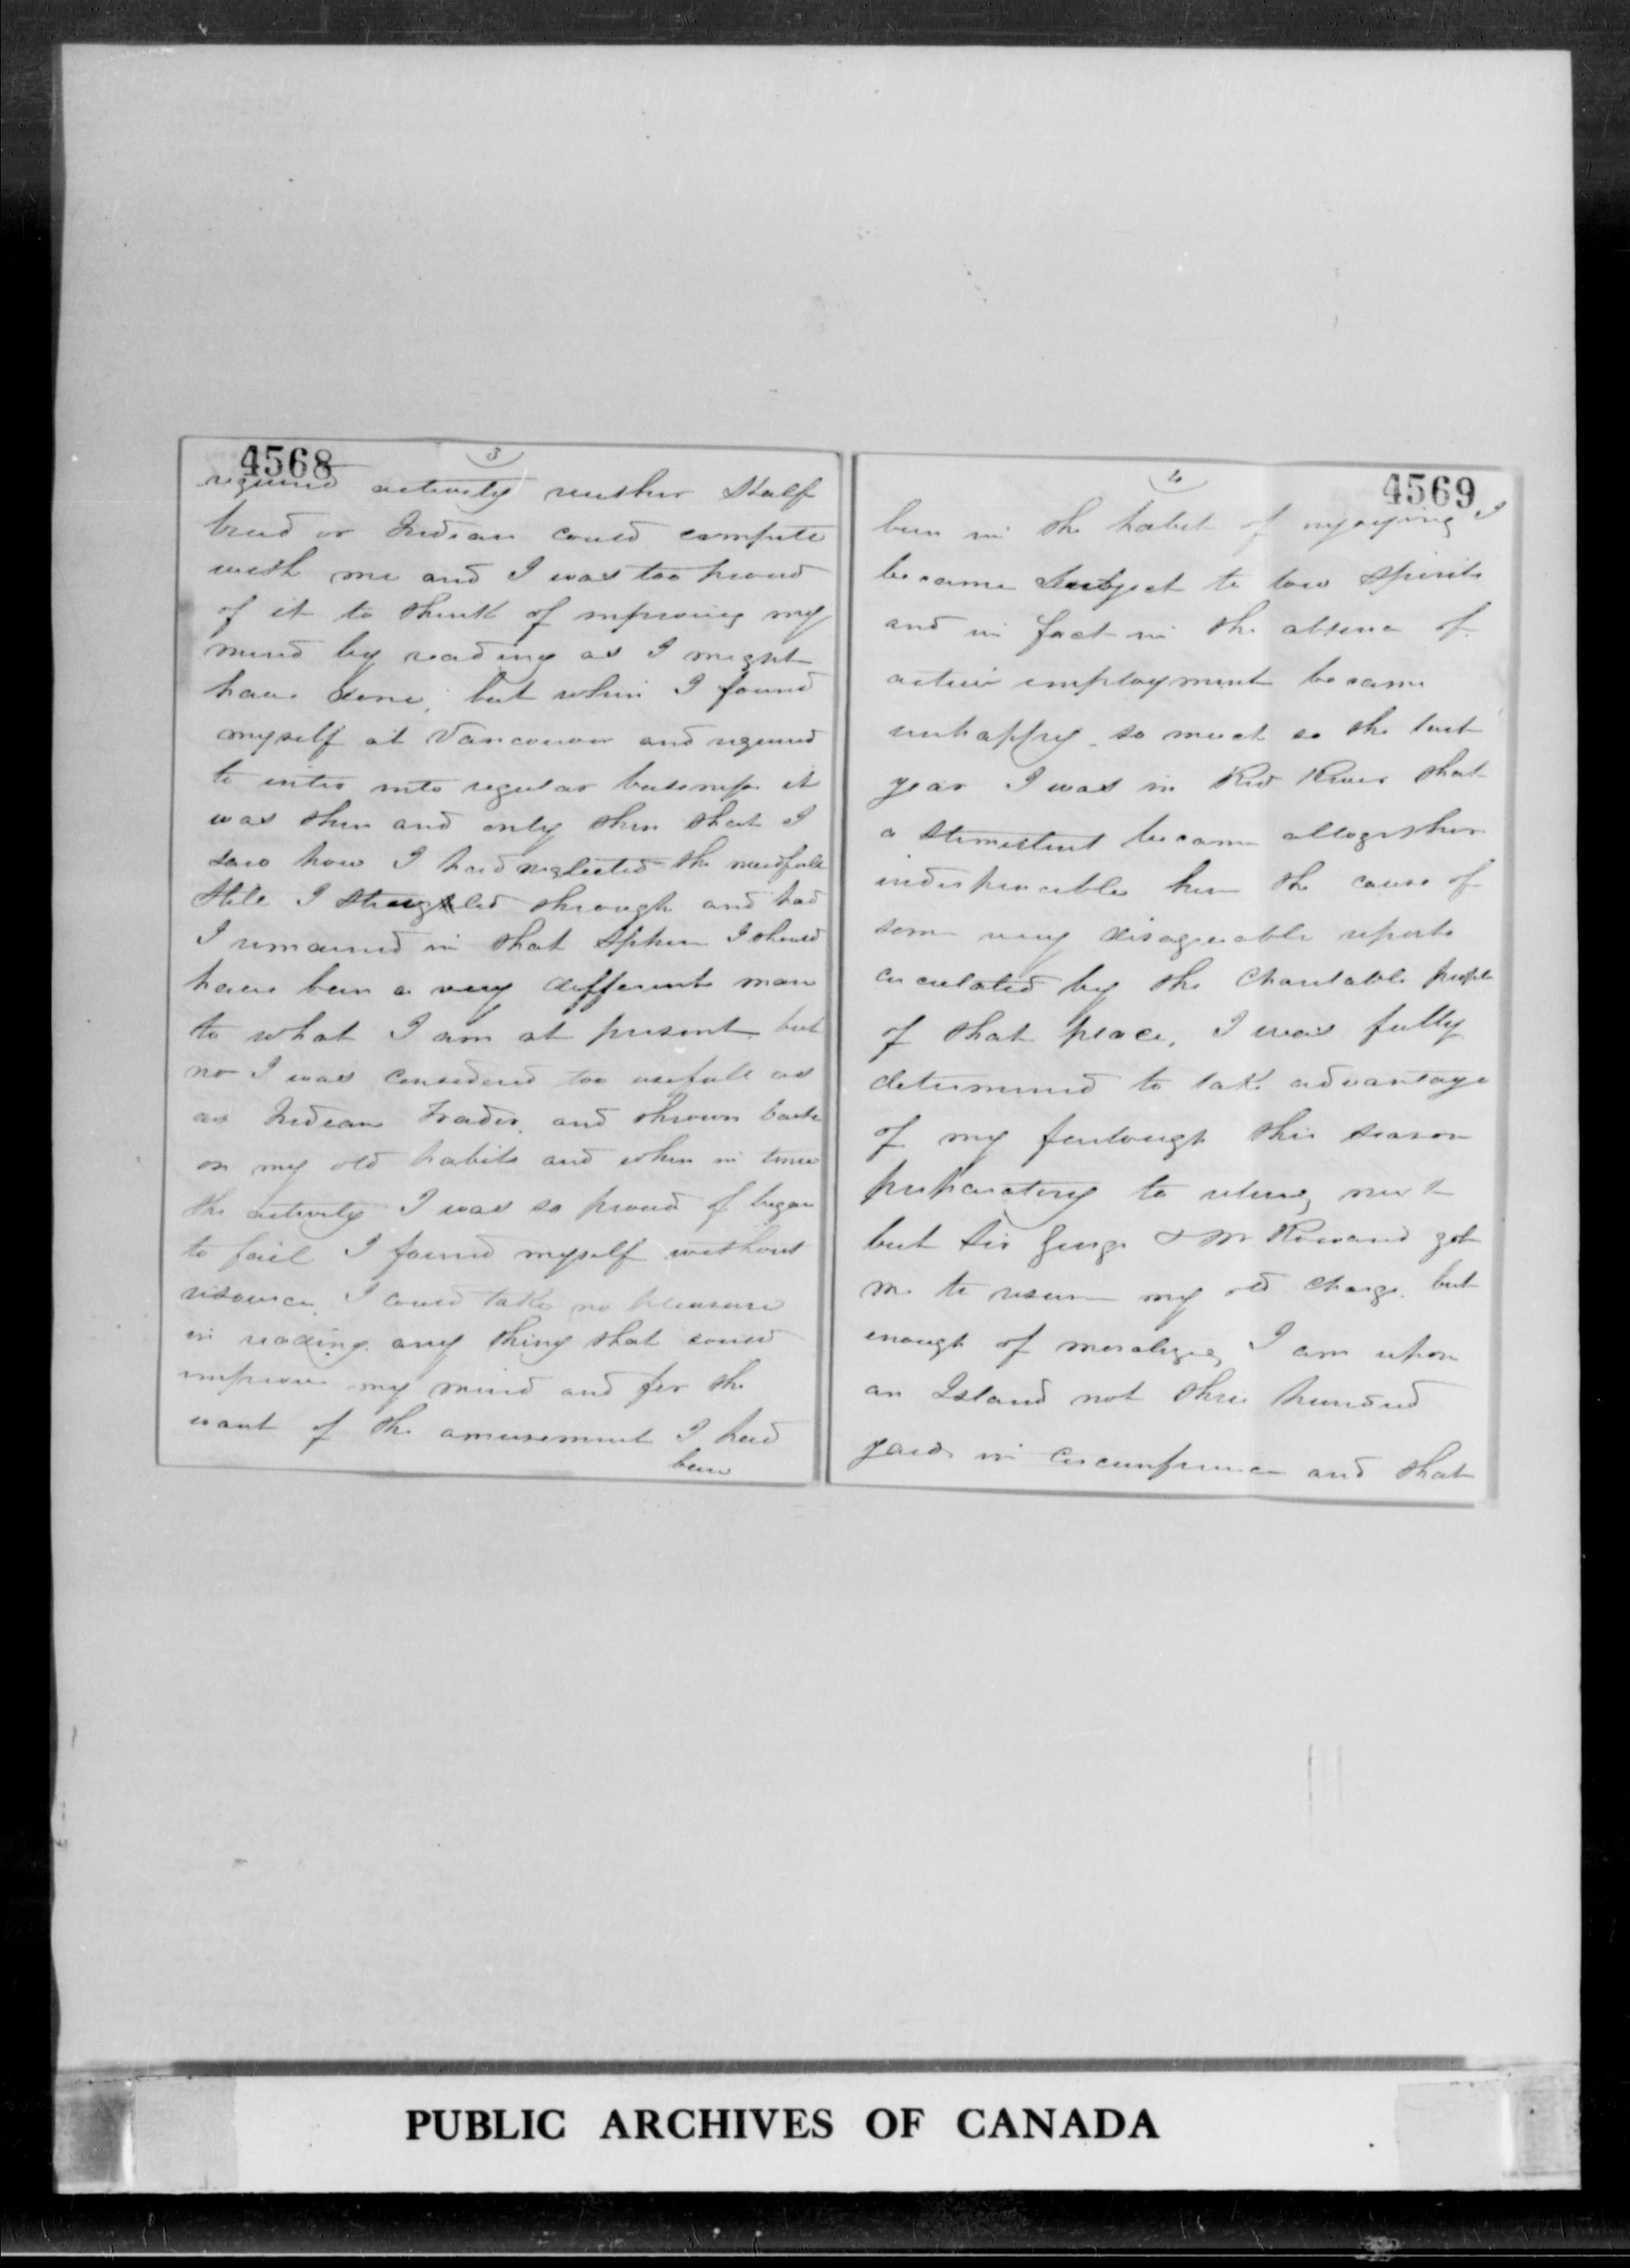 4568
3
required activity neither Half
breed or Indian could compete
with me and I was too proud
of it to think of improving my
mind by reading as I might
have done, but when I found
myself at Vancouver and required
to enter into regular business it
was then and only then that I
saw how I had neglected the needfull
Still I struggled through and had
I remained in that sphere I should
have been a very different man
to what I am at present but
no I was considered too usefull as
an Indian Trader, and thrown back
on my old habits and when in time
the activity I was so proud of began
to fail I found myself without
resource, I could take no pleasure
in reading any thing that could
improve my mind and for the
want of the amusement I had
been
4
4569
been in the habit of enjoying I
became subject to low spirits
and in fact in the absence of
active employment became
unhappy so much so the last
year I was in Red River that
a stimulent became altogether
indispencible hence the cause of
some very disagreeable reports
circulated by the Charitable people
of that place, I was fully
determined to take advantage
of my furlough this season
preparatory to retiring next
but Sir George & Mr Rowand got
me to resume my old charge. but
enough of moralizing I am upon
an Island not three hundred
yards in circumference and that
PUBLIC ARCHIVES OF CANADA